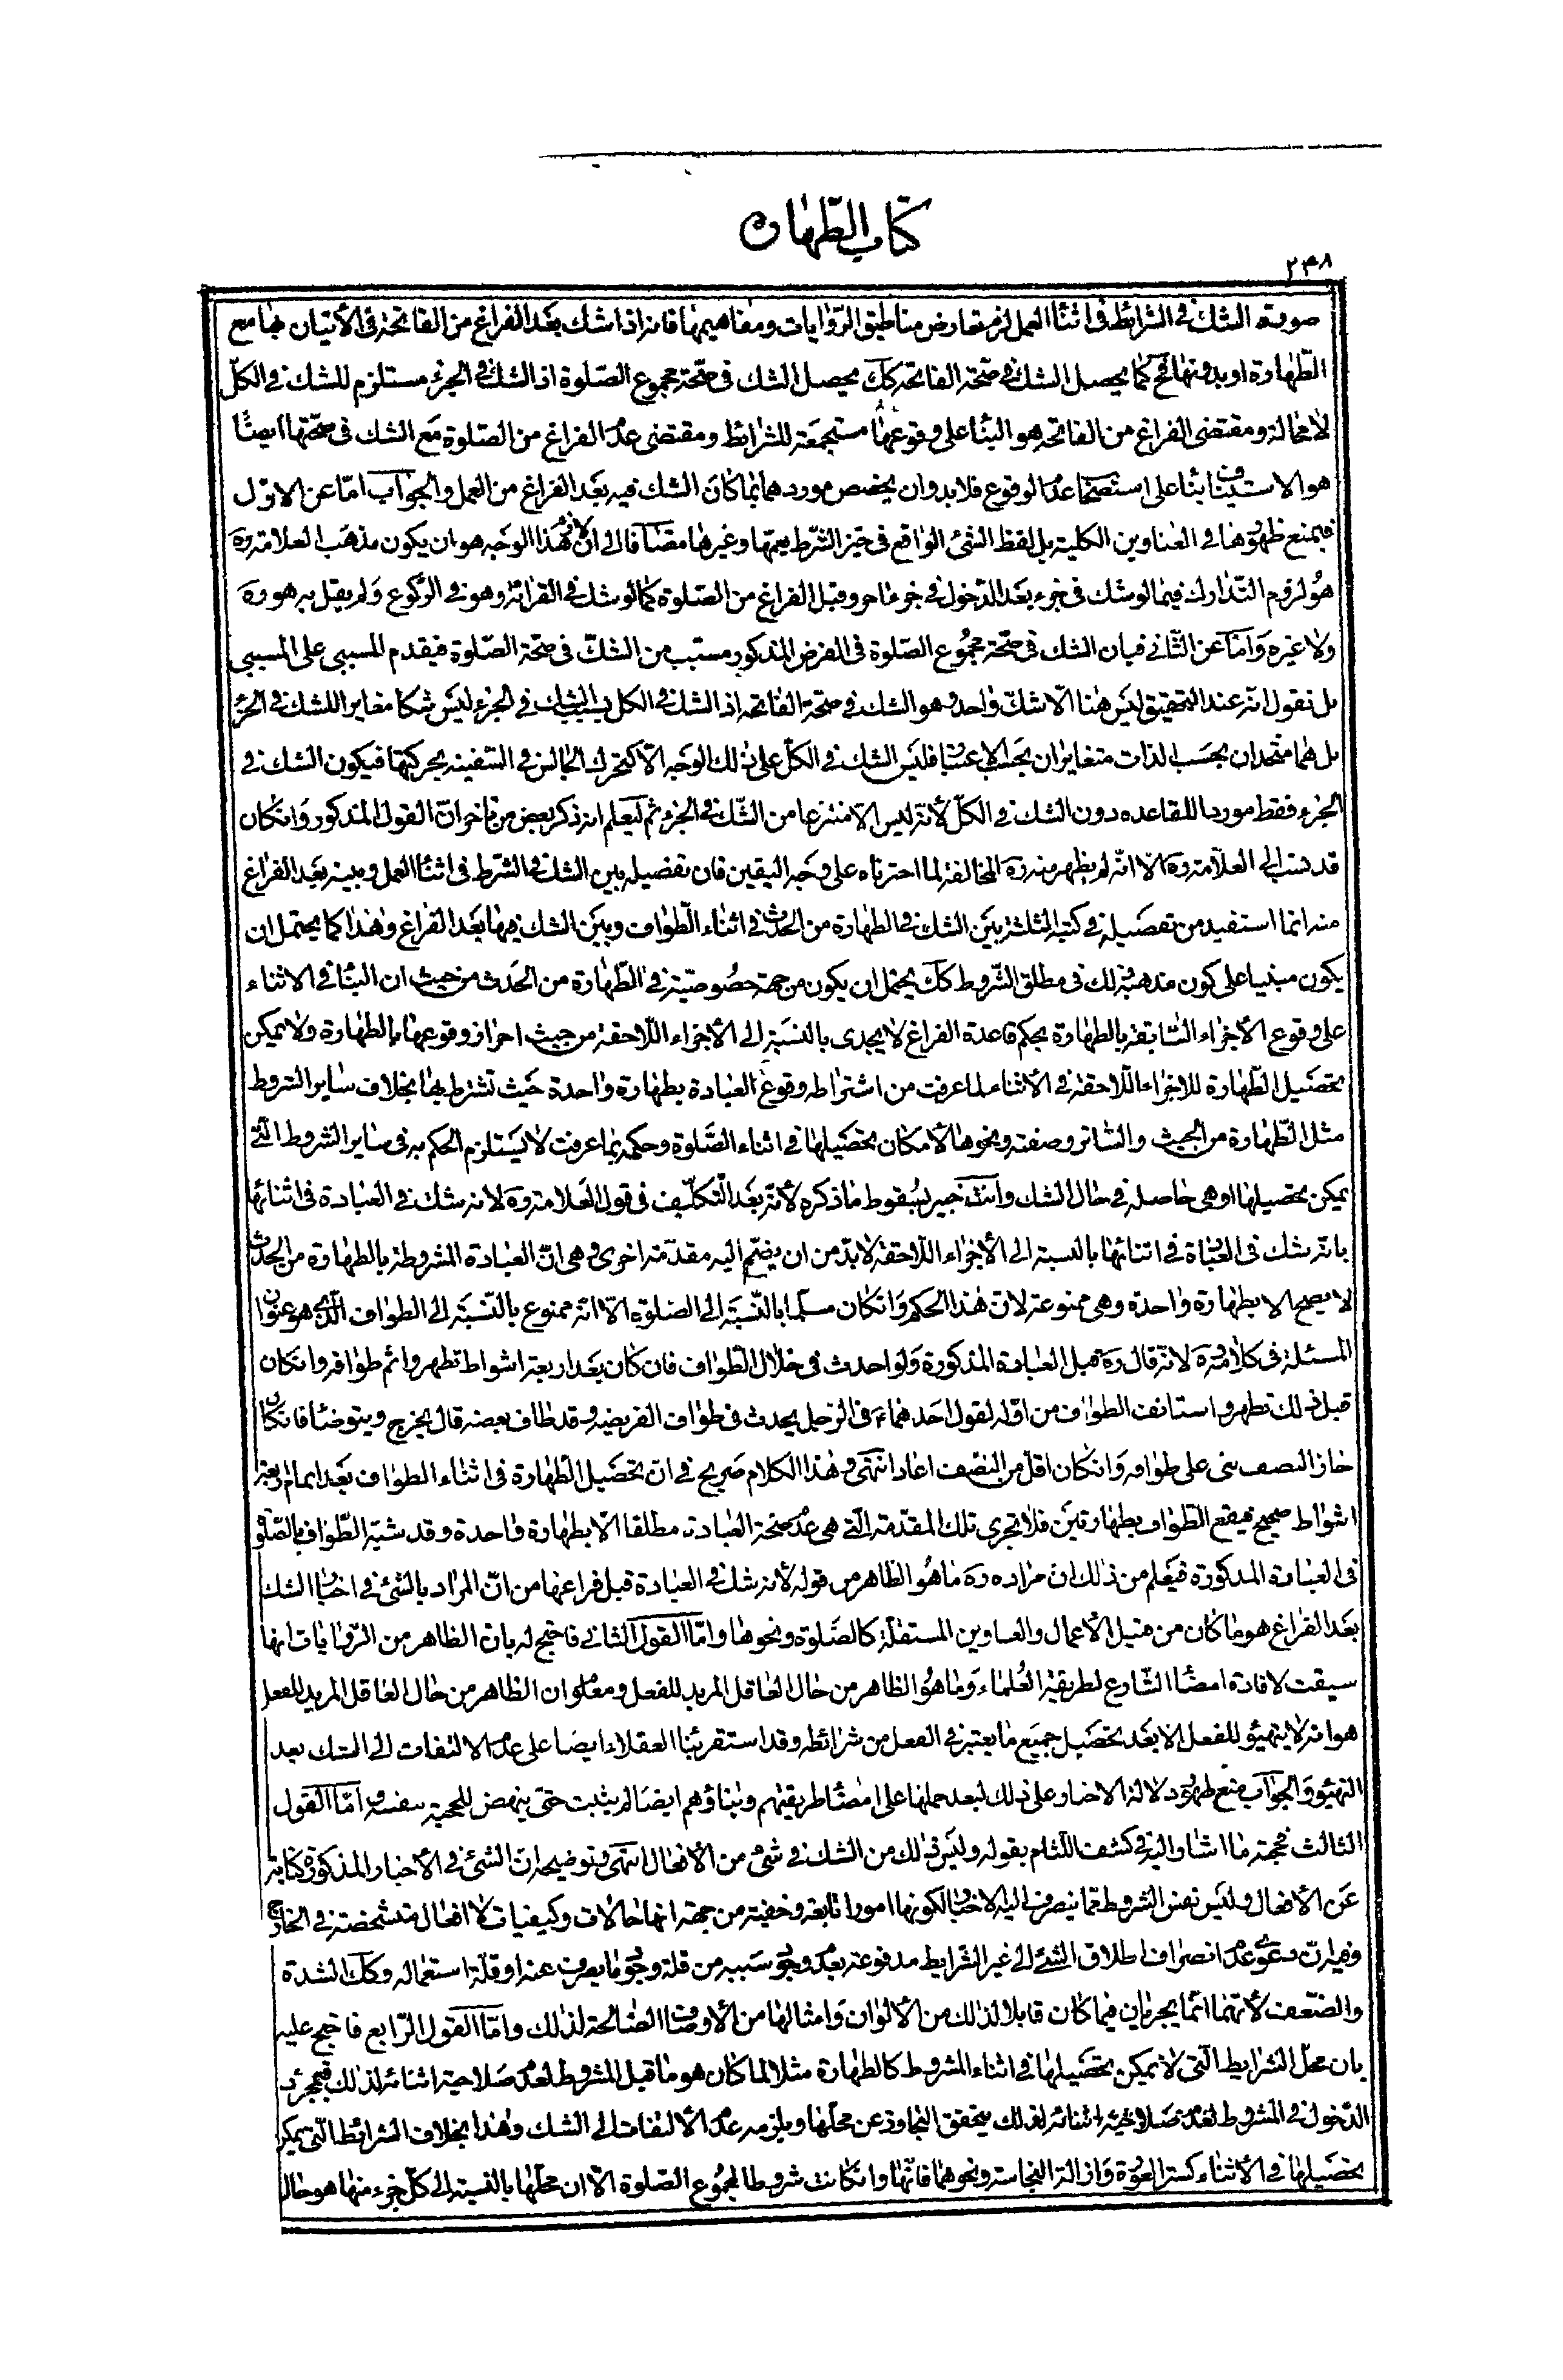 كتاب الطهارة
٢٤٨
صورة الشك في الشرائط في اثناء العمل لزم تعارض مناطيق الروايات ومفاهيمها فانه اذا شك بعد الفراغ من الفاتحة في الأتيان بها مع
الطهارة او بدونها فح كما يحصل الشك في صحة الفاتحة كك يحصل الشك في صحة مجموع الصلوة اذ الشك في الجزء مستلزم للشك في الكل
لا محالة ومقتضى الفراغ من الفاتحة هو البناء على وقوعها مستجمعة للشرائط ومقتضى عدم الفراغ من الصلوة مع الشك في صحتها ايضا
هو الاستيناف بناء على استصحاب عدم الوقوع فلا بد وان يخصص موردهما بما كان الشك فيه بعد الفراغ من العمل والجواب اما عن الاول
فبمنع ظهورها في العناوين الكلية بل لفظ الشئ الواقع في حيز الشرط يعمها وغيرها مضافا الى ان لازم هذا الوجه هو ان يكون مذهب العلامة ره
هو لزوم التدارك فيما لو شك في جزء بعد الدخول في جزء اخر وقبل الفراغ من الصلوة كما لو شك في القرائة وهو في الركوع ولم يقل به هو ره
ولا غيره واما عن الثاني فبان الشك في صحة مجموع الصلوة في الفرض المذكور مسبب من الشك في صحة الصلوة فيقدم للسببي على المسببي
بل نقول انه عند التحقيق ليس هنا الا شك واحد وهو الشك في صحة الفاتحة اذ الشك في الكل بسبب الشك في الجزء ليس شكا مغايرا للشك في الجزء
بل هما متحدان بحسب الذات متغايران بحسب الاعتبار فليس الشك في الكل على ذلك الوجه الا كتحرك الجالس في السفينة بحركتها فيكون الشك في
الجزء فقط موردا للقاعده دون الشك في الكل لأنه ليس الا منتزعا من الشك في الجزء ثم ليعلم انه ذكر بعض من تاخر ان القول المذكور وانكان
قد نسب الى العلامة ره الا انه لم يظهر منه ره المخالفة لما اخترناه على وجه اليقين فان تفضيله بين الشك في الشرط في اثناء العمل وبينه بعد الفراغ
منه انما استفيد من تفصيله في كتبه الثلثة بين الشك في الطهارة من الحدث في اثناء الطواف وبين الشك فيها بعد الفراغ وهذا كما يحتمل ان
يكون مبنيا على كون مذهبه ذلك في مطلق الشروط كك يحتمل ان يكون من جهة خصوصية في الطهارة من الحدث من حيث ان البناء في الاثناء
على وقوع الأجزاء السابقة بالطهارة بحكم قاعدة الفراغ لا يجدى بالنسبة الى الأجزاء اللاحقة من حيث احراز وقوعها بالطهارة ولا يمكن
تحصيل الطهارة للاجزاء اللاحقة في الأثناء لما عرفت من اشتراطه وقوع العبادة بطهارة واحدة حيث تشترط بها بخلاف ساير الشروط
مثل الطهارة من الخبث والساتر وصفته ونحوها لأمكان تحصيلها في اثناء الصلوة وحكمه بما عرفت لا يستلزم الحكم به في ساير الشروط التي
يمكن تحصيلها او هي حاصلة في حال الشك وانت خبير بسقوط ما ذكره لأنه بعد التكليف في قول العلامة ره لانه شك في العبادة في اثنائها
بانه شك في العبادة في اثنائها بالنسبة الى الأجزاء اللاحقة لا بد من ان يضم اليه مقدمة اخرى وهي ان العبادة المشروطة بالطهارة من الحدث
لا يصح الا بطهارة واحدة وهي ممنوعة لان هذا الحكم وانكان مسلما بالنسبة الى الصلوة الا انه ممنوع بالنسبة الى الطواف الذي هو عنوان
المسئلة في كلامه ره لانه قال ره قبل العبادة المذكورة ولو احدث في خلال الطواف فان كان بعد اربعة اشواط تطهر واتم طوافه وانكان
قبل ذلك تطهر واستانف الطواف من اوله لقول احدهماء في الرجل يحدث في طواف الفريضه وقد طاف بعضه قال يخرج ويتوضأ فانكان
جاز النصف بنى على طوافه وانكان اقل من النصف اعاد انتهى وهذا الكلام صريح في ان تحصيل الطهارة في اثناء الطواف بعد اتمام اربعة
اشواط صحيح فيقع الطواف بطهارتين فلا تجرى تلك المقدمة التي هي عدم صحة العبادة مطلقا الا بطهارة واحدة وقد شبه الطواف بالصلوة
في العبادة المذكورة فيعلم من ذلك ان مراده ره ما هو الظاهر من قوله لأنه شك في العبادة قبل فراغها من ان المراد بالشئ في اخبار الشك
بعد الفراغ هو ما كان من قبيل الأعمال والعناوين المستقلة كالصلوة ونحوها واما القول الثاني فاحتج له بان الظاهر من الروايات انها
سيقت لافادة امضاء الشارع لطريقة العلماء وما هو الظاهر من حال العاقل المريد للفعل ومعلوم ان الظاهر من حال العاقل المريد للفعل
هو انه لا يتهيؤ للفعل الا بعد تحصيل جميع ما يعتبر في الفعل من شرائطه وقد استقر بناء العقلاء ايضا على عدم الالتفات الى الشك بعد
التهيؤ والجواب منع ظهور دلالة الاخبار على ذلك لبعد حملها على امضاء طريقتهم وبناؤهم ايضا لم يثبت حتى ينهض للحجية بنفسه واما القول
الثالث فحجته ما اشار اليه في كشف اللثام بقوله وليس ذلك من الشك في شئ من الأفعال انتهى وتوضيحه ان الشئ في الأخبار المذكورة كناية
عن الأفعال وليس نفس الشروط مما ينصرف اليه الاخبار لكونها امورا تابعة وخفية من جهة انها حالات وكيفيات لا افعال متشخصة في الخارج
وفيه ان دعوى عدم انصراف اطلاق الشئ الى غير الشرايط مدفوعة بعدم وجود سببه من قلة وجود ما يصرف عنه او قلة استعماله وكك الشدة
والضعف لأنهما انما يجريان فيما كان قابلا لذلك من الألوان وامثالها من الأوصاف الصالحة لذلك واما القول الرابع فاحتج عليه
بان محل الشرايط التي لا يمكن تحصيلها في اثناء المشروط كالطهارة مثلا لما كان هو ما قبل المشروط لعدم صلاحية اثنائه لذلك فبمجرد
الدخول في المشروط لعدم صلاحية اثنائه لذلك يتحقق التجاوز عن محلها ويلزمه عدم الألتفات الى الشك وهذا بخلاف الشرائط التي يمكن
تحصيلها في الأثناء كستر العورة وازالة النجاسة ونحوهما فانها وانكانت شروطا لمجموع الصلوة الا ان محلها بالنسبة الى كل جزء منها هو حال